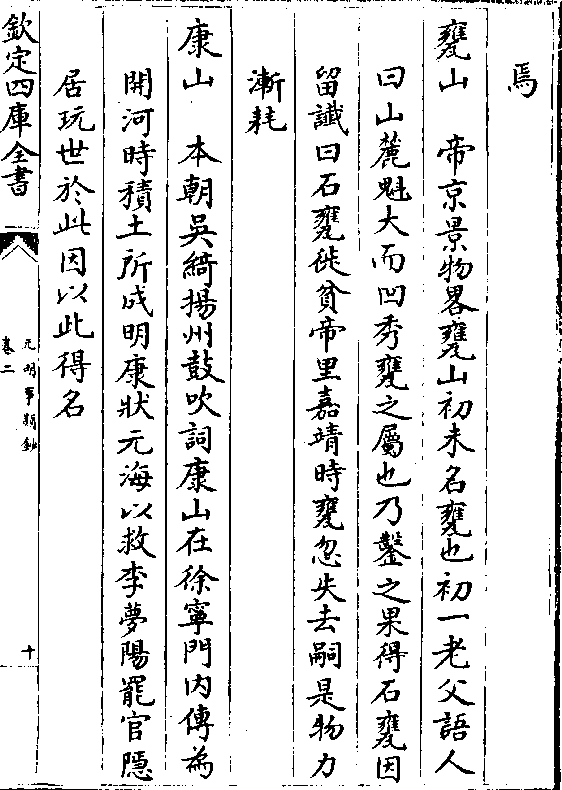 焉
甕山　帝京景物畧甕山初未名甕也初一老父語人
曰山麓魁大而凹秀甕之屬也乃鑿之果得石甕因
留䜟曰石甕徙貧帝里嘉靖時甕忽失去嗣是物力
漸耗
康山　本朝吳綺揚州鼓吹詞康山在徐寧門内傳為
開河時積土所成明康狀元海以救李夢陽罷官隱
居玩世於此因以此得名
欽定四庫全書
元明事類鈔
卷二
十